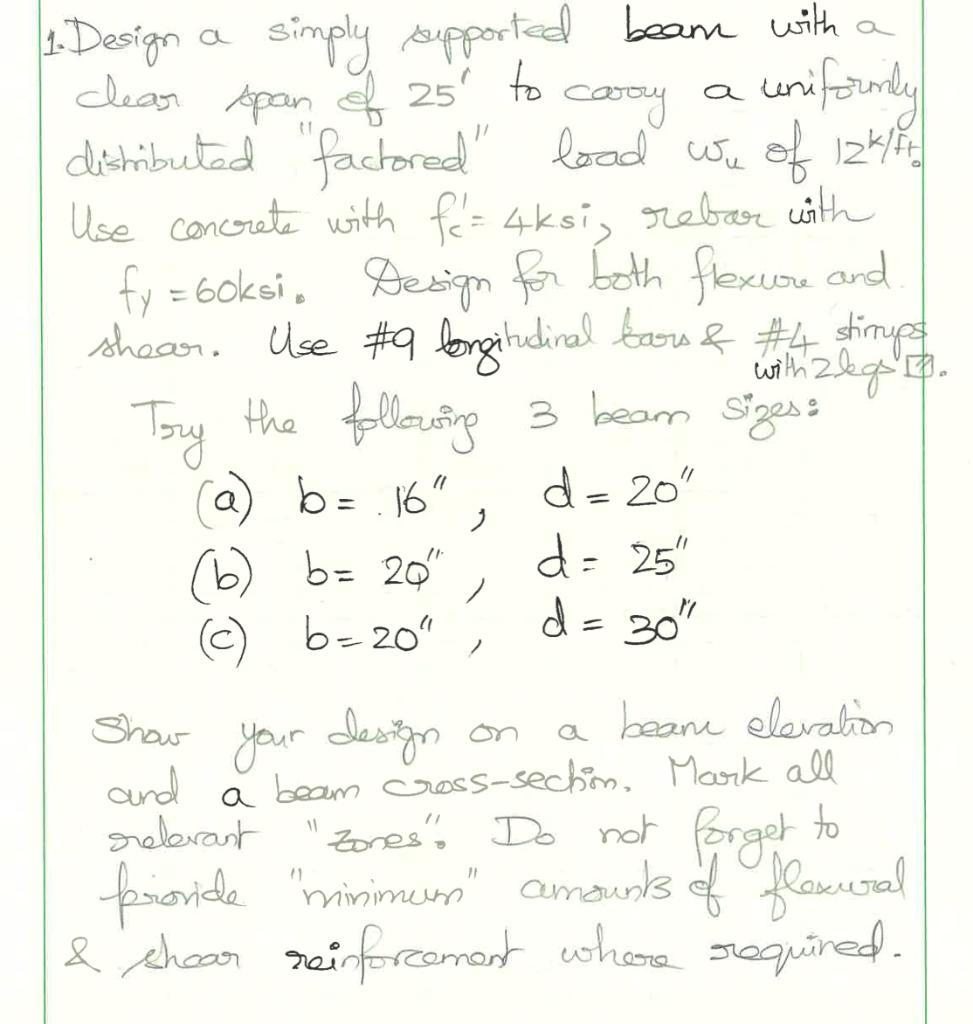 1. Design a simply supported beam with a
clear span of 25' to carry a uniformly
distributed "factored" load wu of 12k/ft.
Use concrete with fc' = 4ksi, rebar with
fy = 60ksi. Design for both flexure and
shear. Use #9 longitudinal bars & #4 stirrups
with 2 legs.
Try the following 3 beam sizes:
(a) b = 16", d = 20"
(b) b = 20", d = 25"
(c) b = 20", d = 30"
Show your design on a beam elevation
and a beam cross-section. Mark all
relevant "zones". Do not forget to
provide "minimum" amounts of flexural
& shear reinforcement where required.